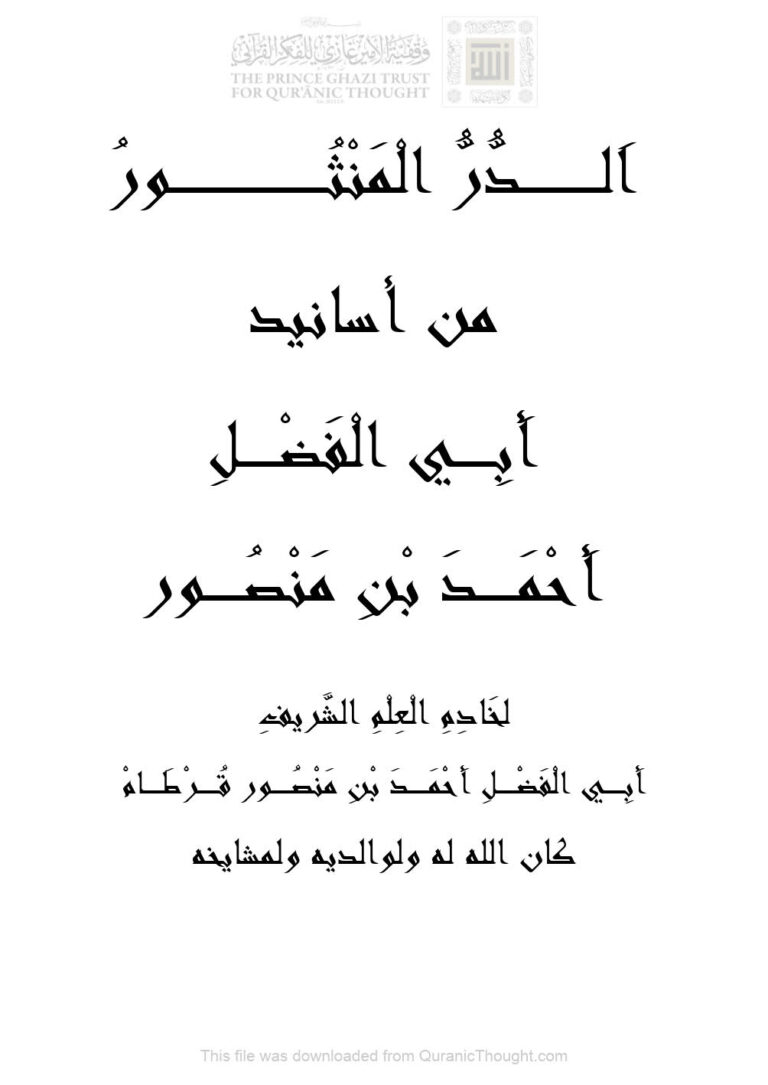 وقفية الأمير غازي للفكر القرآني
THE PRINCE GHAZI TRUST
FOR QUR'ĀNIC THOUGHT
الله
اَلـــدُّرُّ الْمَنْثُـــــورُ
من أسانيد
أَبِـــي الْفَضْـــلِ
أَحْمَـــدَ بْنِ مَنْصُـــور
لخَادِمِ الْعِلْمِ الشَّريفِ
أَبِـــي الْفَضْـــلِ أَحْمَـــدَ بْنِ مَنْصُـــور قُـــرْطَـــامْ
كان الله له ولوالديه ولمشايخه
This file was downloaded from QuranicThought.com